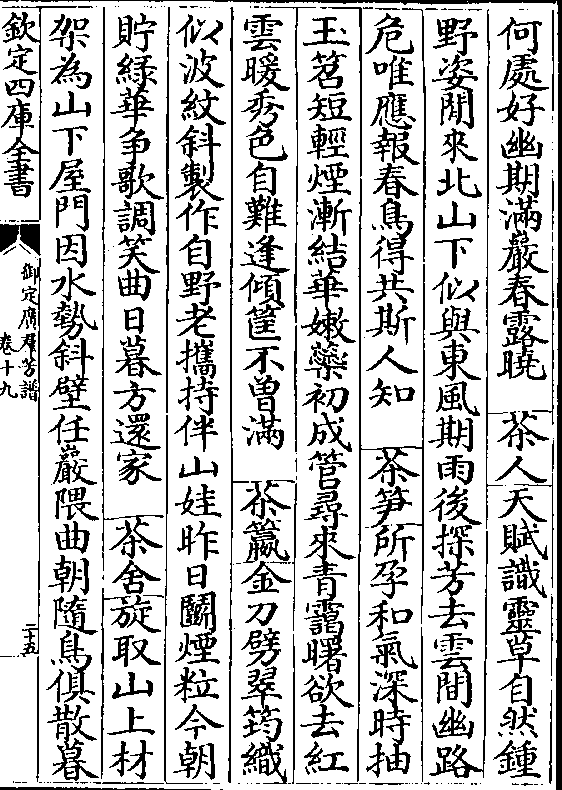 何處好幽期滿巖春露曉　茶人天賦識靈草自然鍾
野姿閒來北山下似與東風期雨後探芳去雲間幽路
危唯應報春鳥得共斯人知　茶筍所孕和氣深時抽
玉笤短輕煙漸結華嫩蘂初成管尋來青靄曙欲去紅
雲暖秀色自難逢傾筐不曾滿　茶籝金刀劈翠筠織
似波紋斜製作自野老攜持伴山娃昨日鬭煙粒今朝
貯綠華争歌調笑曲日暮方還家　茶舍旋取山上材
架為山下屋門因水勢斜壁任巖隈曲朝隨鳥俱散暮
欽定四庫全書
御定廣羣芳譜
卷十九
二十五